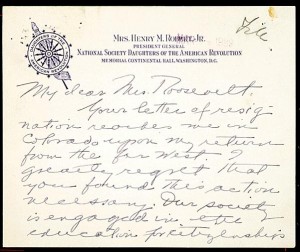 File
MRS. HENRY M. ROBERT, JR.
PRESIDENT GENERAL
NATIONAL SOCIETY DAUGHTERS OF THE AMERICAN REVOLUTION
MEMORIAL CONTINENTAL HALL, WASHINGTON, D.C.
My dear Mrs. Roosevelt.
Your letter of resig
nation reaches me in
Colorado upon my return
from the far West. I
greatly regret that
you found this action
necessary. Our society
is engaged in the
education for citizenship